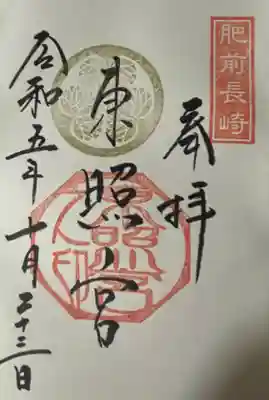 肥前長崎
奉拝
東照宮
令和五年十月二十三日